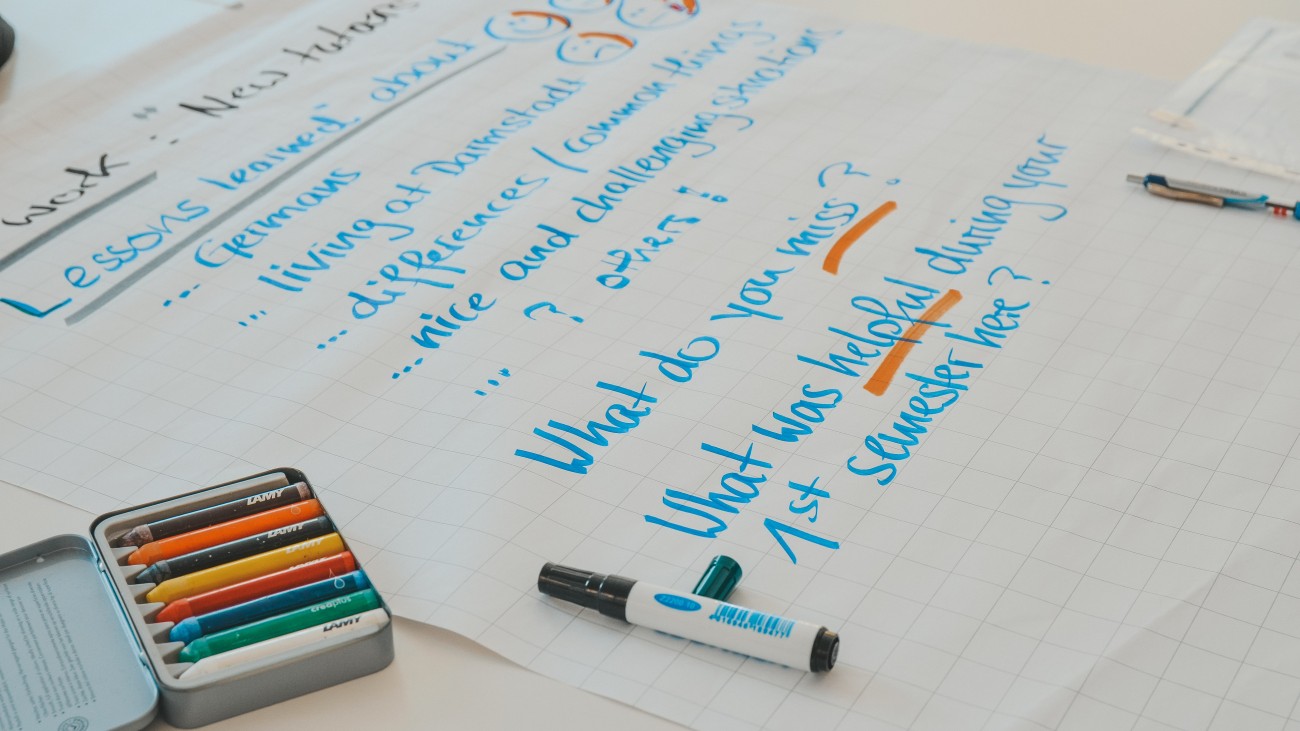 work : - New tutors
"Lessons learned" about
... Germans
... living at Darmstadt
... differences / common things
... nice and challenging situations
... ? others?
What do you miss?
What was helpful during your
1st semester here?
LAMY
LAMY
LAMY
LAMY